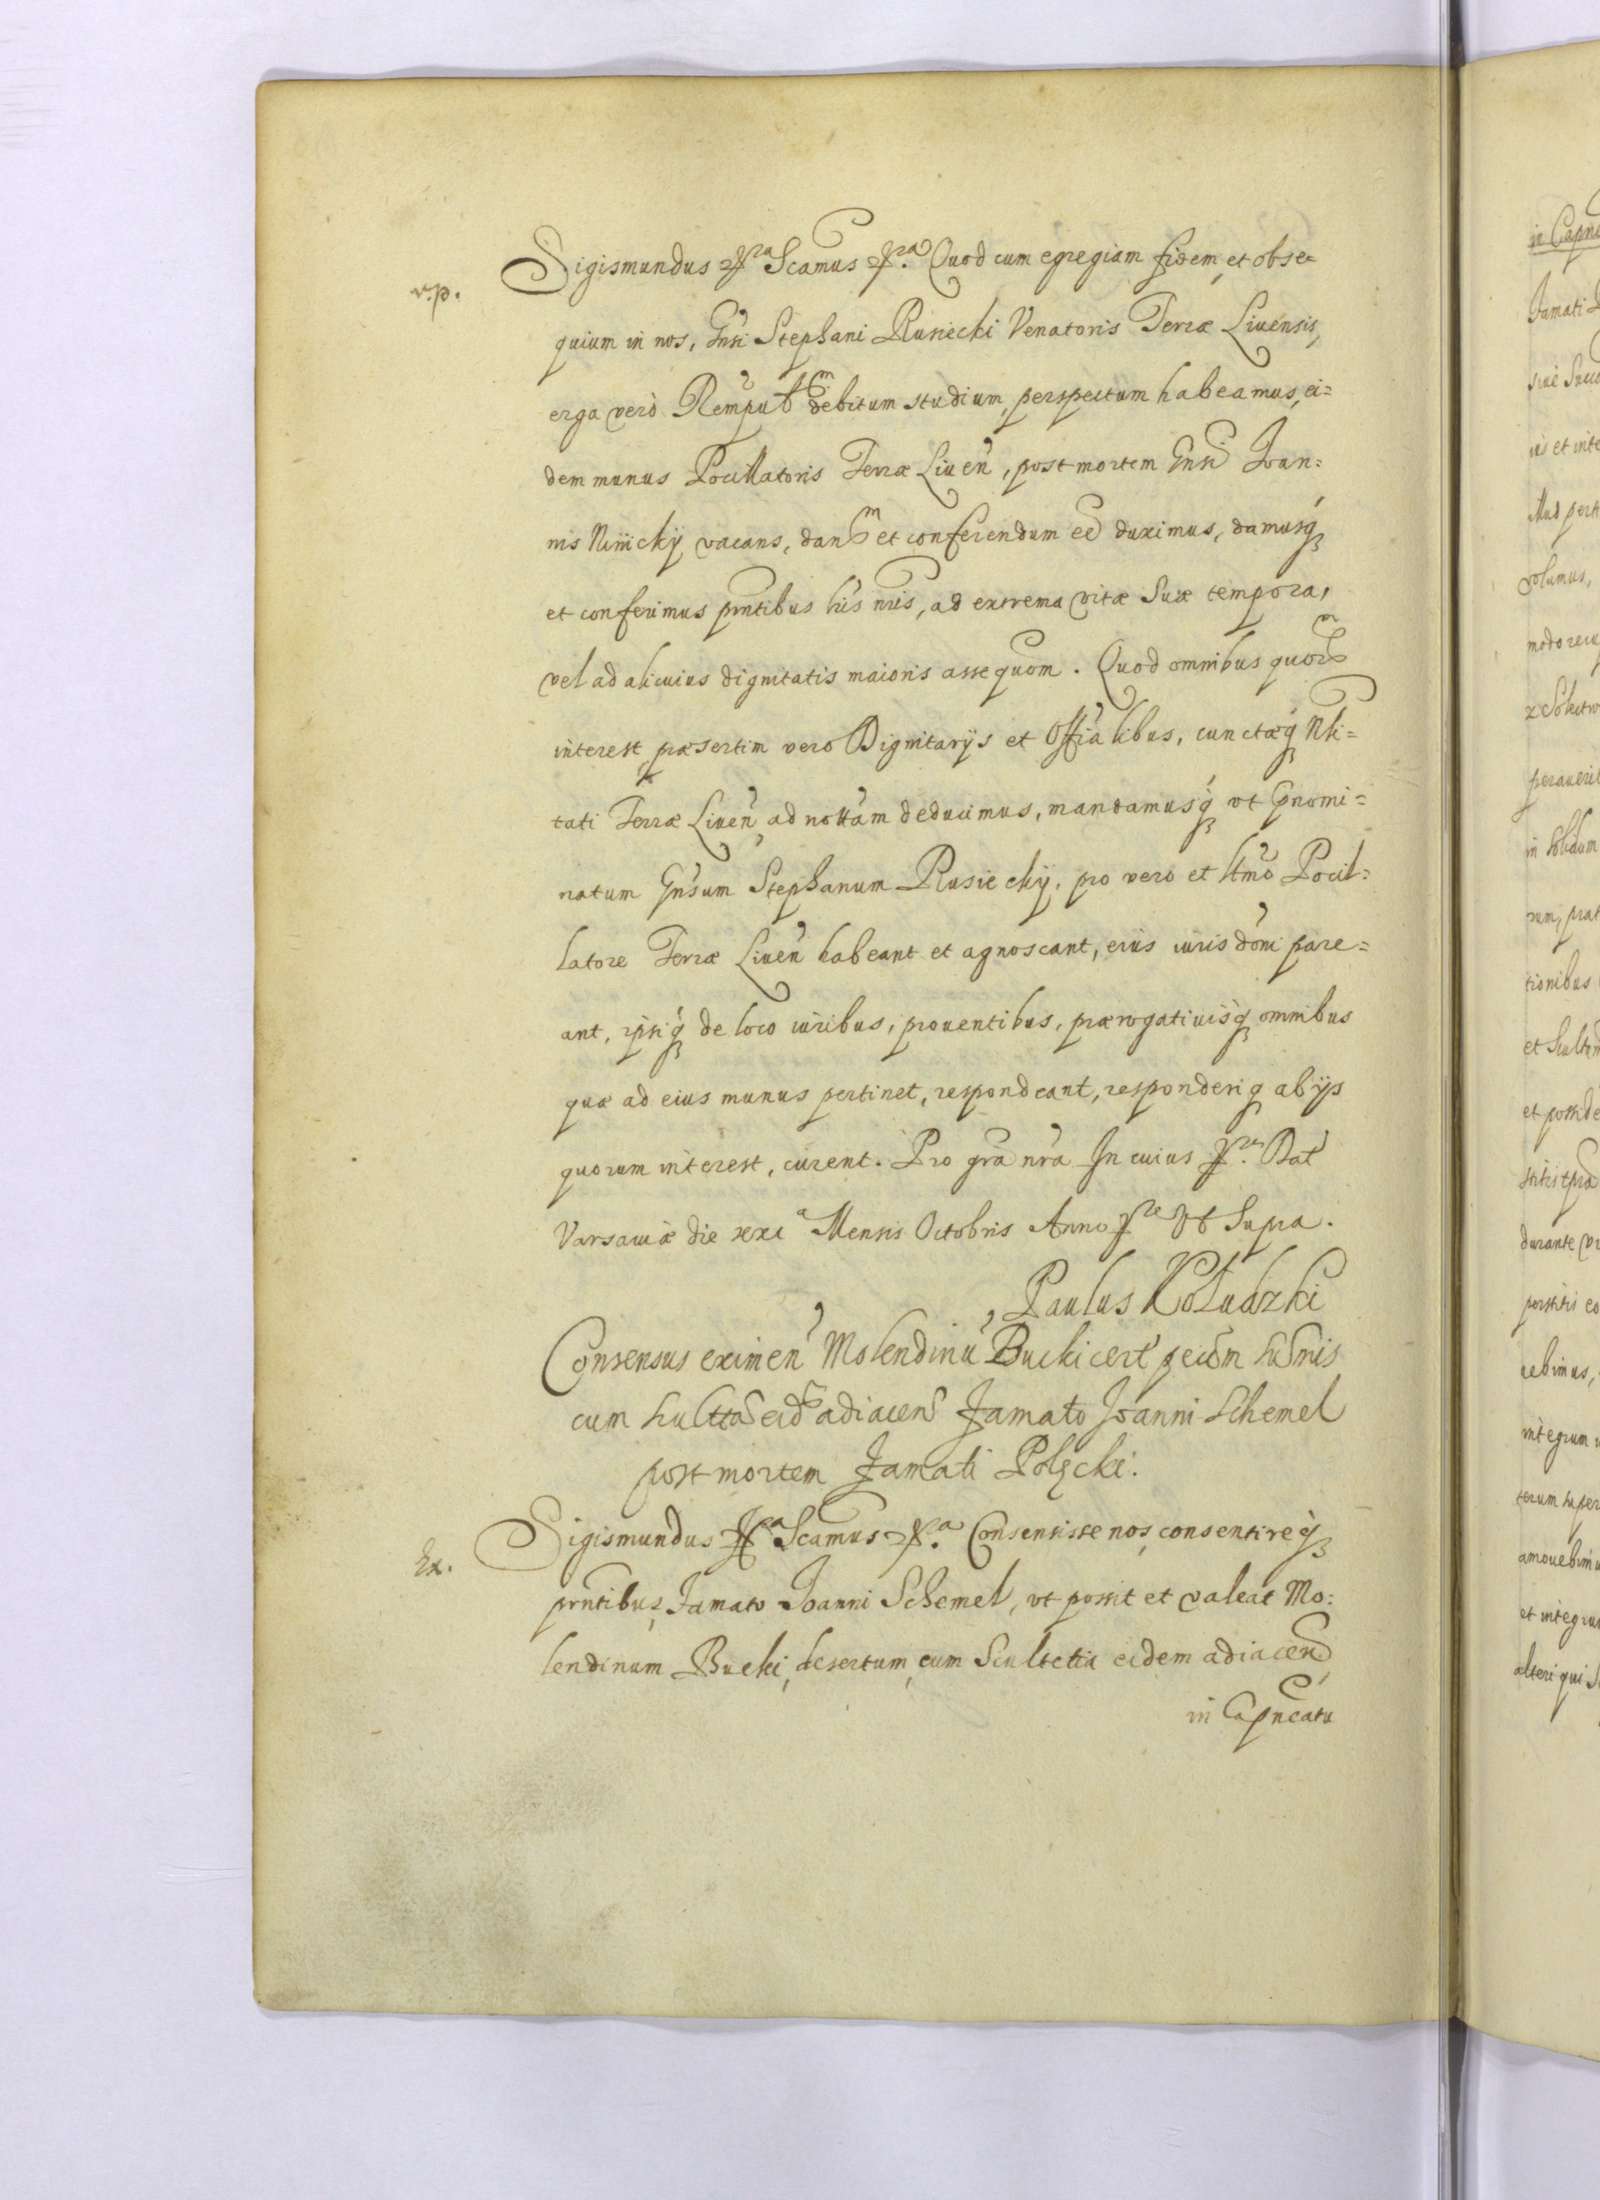 Sigismundus etc.ra Scamus etc.ra Quod cum egregiam fidem, et obse=
v.p.
quium in nos, Gnsi Stephani Rusiecki Venatoris Terræ Liuensis,
erga verò Rempubm debitum studium, perspectum habeamus, ei=
dem munus Pocillatoris Terræ Liuen, post mortem Gnsi Ioan=
nis vacans, danm et conferendum eē duximus, damusq
et conferimus pntibus his nris, ad extrema vitæ Suæ tempora,
vel ad alicuius dignitatis maioris assequom. Quod omnibus quorm
interest, præsertim vero Dignitarÿs et Offialibus, cunctæq Nli=
tati Terræ Liuen, ad nottam deducimus, mandamusq vt Gnomi=
natum Gnsum Stephanum Rusieckÿ, pro vero et ltmo Pocil=
latore Terræ Liuen habeant et agnoscant, eius iuris doni pare=
ant, ipsiq de loco iuribus, prouentibus, prærogatiuisq omnibus
quæ ad eius munus pertinet, respondeant, responderiq ab ijs
quorum interest, curent. Pro gra nra In cuius etc.ra Dat
Varsauiæ die xxia Mensis Octobris Anno etc. Vt Supra.
Paulus Kołudzki
Consensus eximen Molendinu Bucki
cum adiacen Famato Joanni Schemel
post mortem Famati Polęcki.
Sigismundus etc.ra Scamus etc.a Consensisse nos, consentireq
Ex.
pntibus, Famato Joanni Schemel, vt possit et valeat Mo=
lendinum Bucki, desertum, cum Scultetia eidem adiacen
in Capncatu